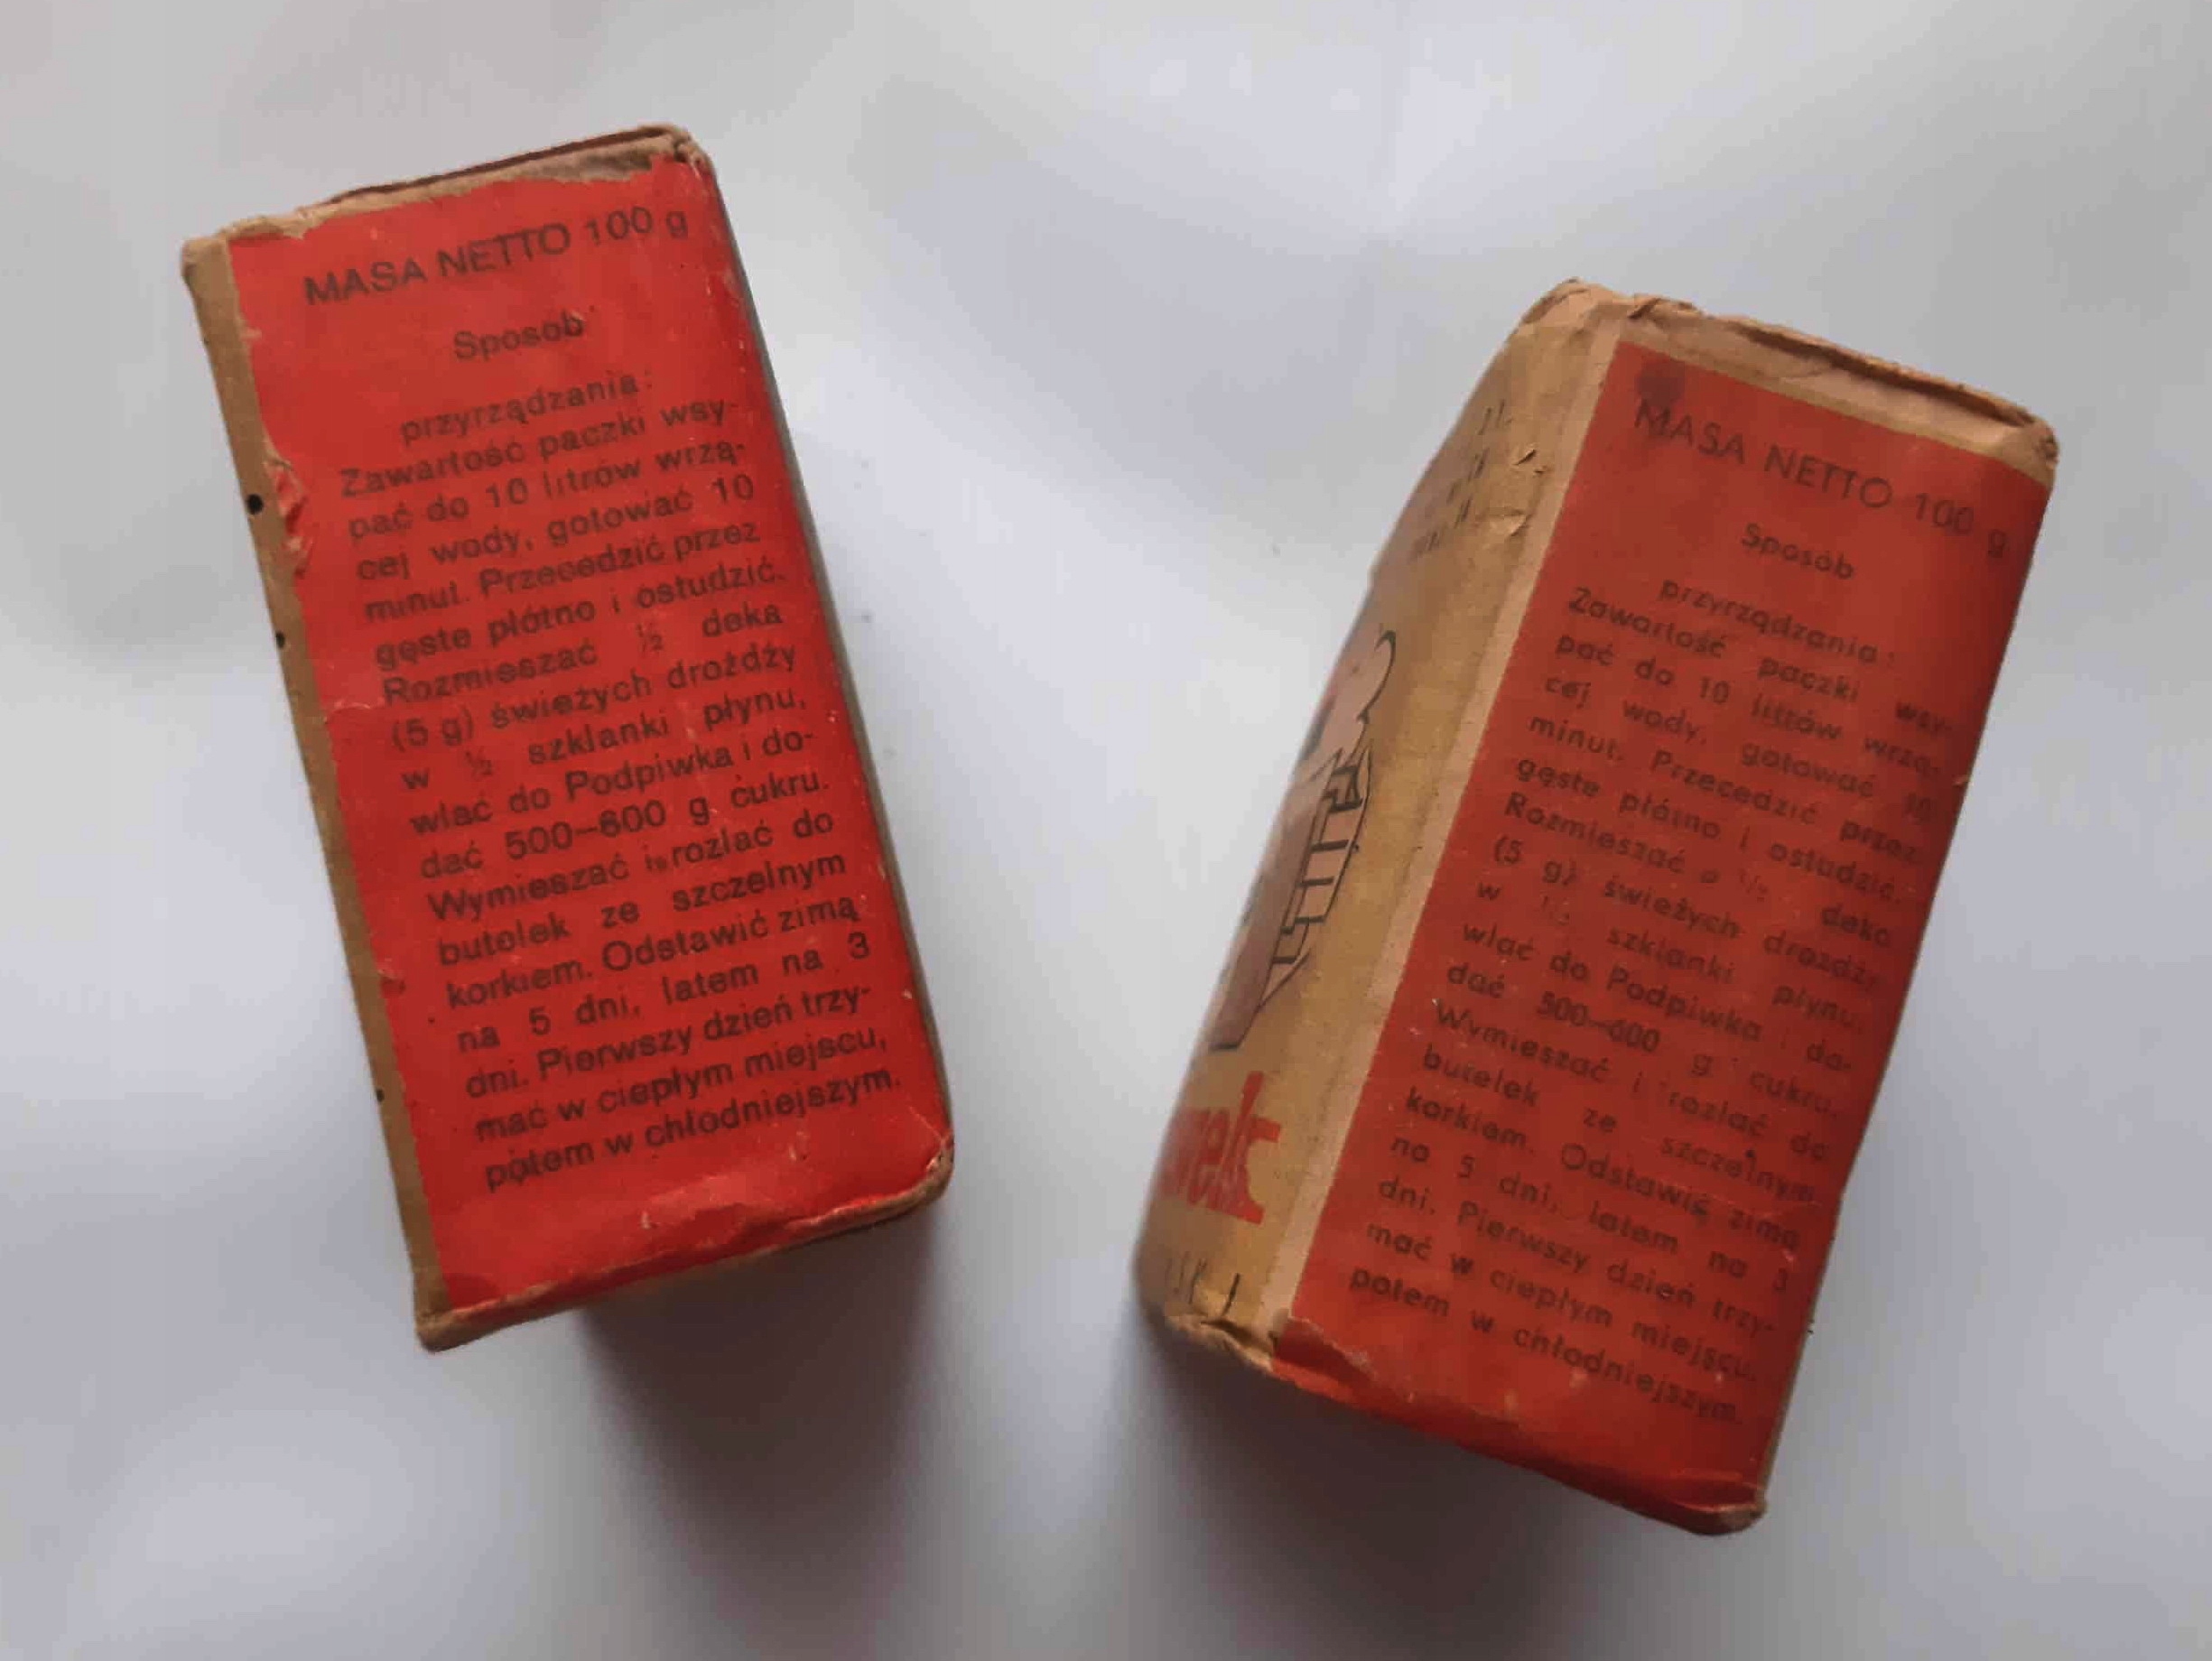 MASA NETTO 100 g
Sposób
przyrządzania:
Zawartość paczki wsy-
pać do 10 litrów wrzą-
cej wody, gotować 10
minut. Przecedzić przez
gęste płótno i ostudzić.
Rozmieszać ½ deka
(5 g) świeżych drożdży
w ½ szklanki płynu,
wlać do Podpiwka i do-
dać 500–600 g cukru.
Wymieszać i rozlać do
butelek ze szczelnym
korkiem. Odstawić zimą
na 5 dni, latem na 3
dni. Pierwszy dzień trzy-
mać w ciepłym miejscu,
potem w chłodniejszym.
MASA NETTO 100 g
Sposób
przyrządzania:
Zawartość paczki wsy-
pać do 10 litrów wrzą-
cej wody, gotować 10
minut. Przecedzić przez
gęste płótno i ostudzić.
Rozmieszać ½ deka
(5 g) świeżych drożdży
w ½ szklanki płynu,
wlać do Podpiwka i do-
dać 500–600 g cukru.
Wymieszać i rozlać do
butelek ze szczelnym
korkiem. Odstawić zimą
na 5 dni, latem na 3
dni. Pierwszy dzień trzy-
mać w ciepłym miejscu,
potem w chłodniejszym.